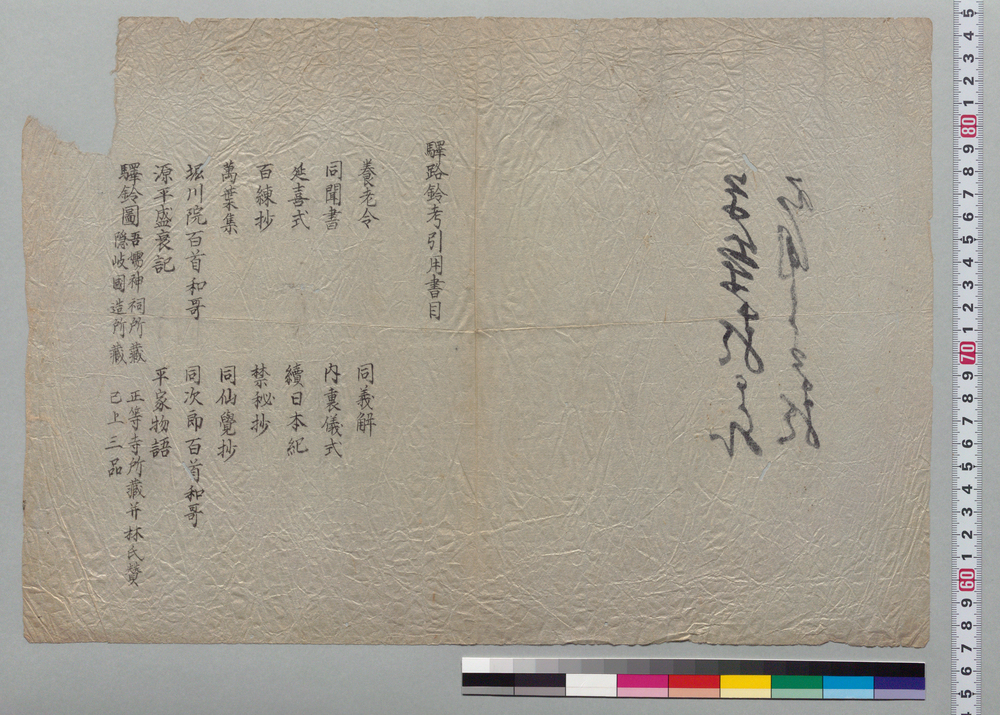 驛路鈴考引用書目
養老令
同義解
同聞書
内裏儀式
延喜式
續日本紀
百練抄
禁秘抄
萬葉集
同仙覺抄
堀川院百首和哥
同次郎百首和哥
源平盛衰記
平家物語
驛鈴圖
吾嬬神祠所藏
正等寺所藏并林氏賛
隱岐國造所藏
已上三品